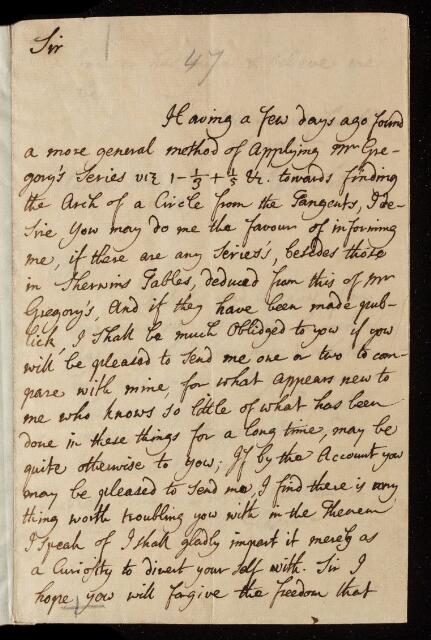 Sir
47
Having a few days ago found
a more general method of Applying Mr Gre-
gory's Series viz 1-1/3+1/5 &c. towards finding
the Arch of a Circle from the Tangents, I de-
sire You may do me the favour of informing
me, if there are any Series's, besides those
in Sherwins Tables, deduced from this of Mr
Gregory's, And if they have been made pub-
lick, I Shall be much Obliged to you if you
will be pleased to Send me one or two to com-
pare with mine, for what appears new to
me who knows so little of what has been
done in these things for a long time, may be
quite otherwise to you; If by the Account you
may be pleased to Send me, I find there is any
thing worth troubling you with in the Theorem
I Speak of I shall gladly impart it merely as
a Curiosity to divert your self with. Sir I
hope you will forgive the freedom that